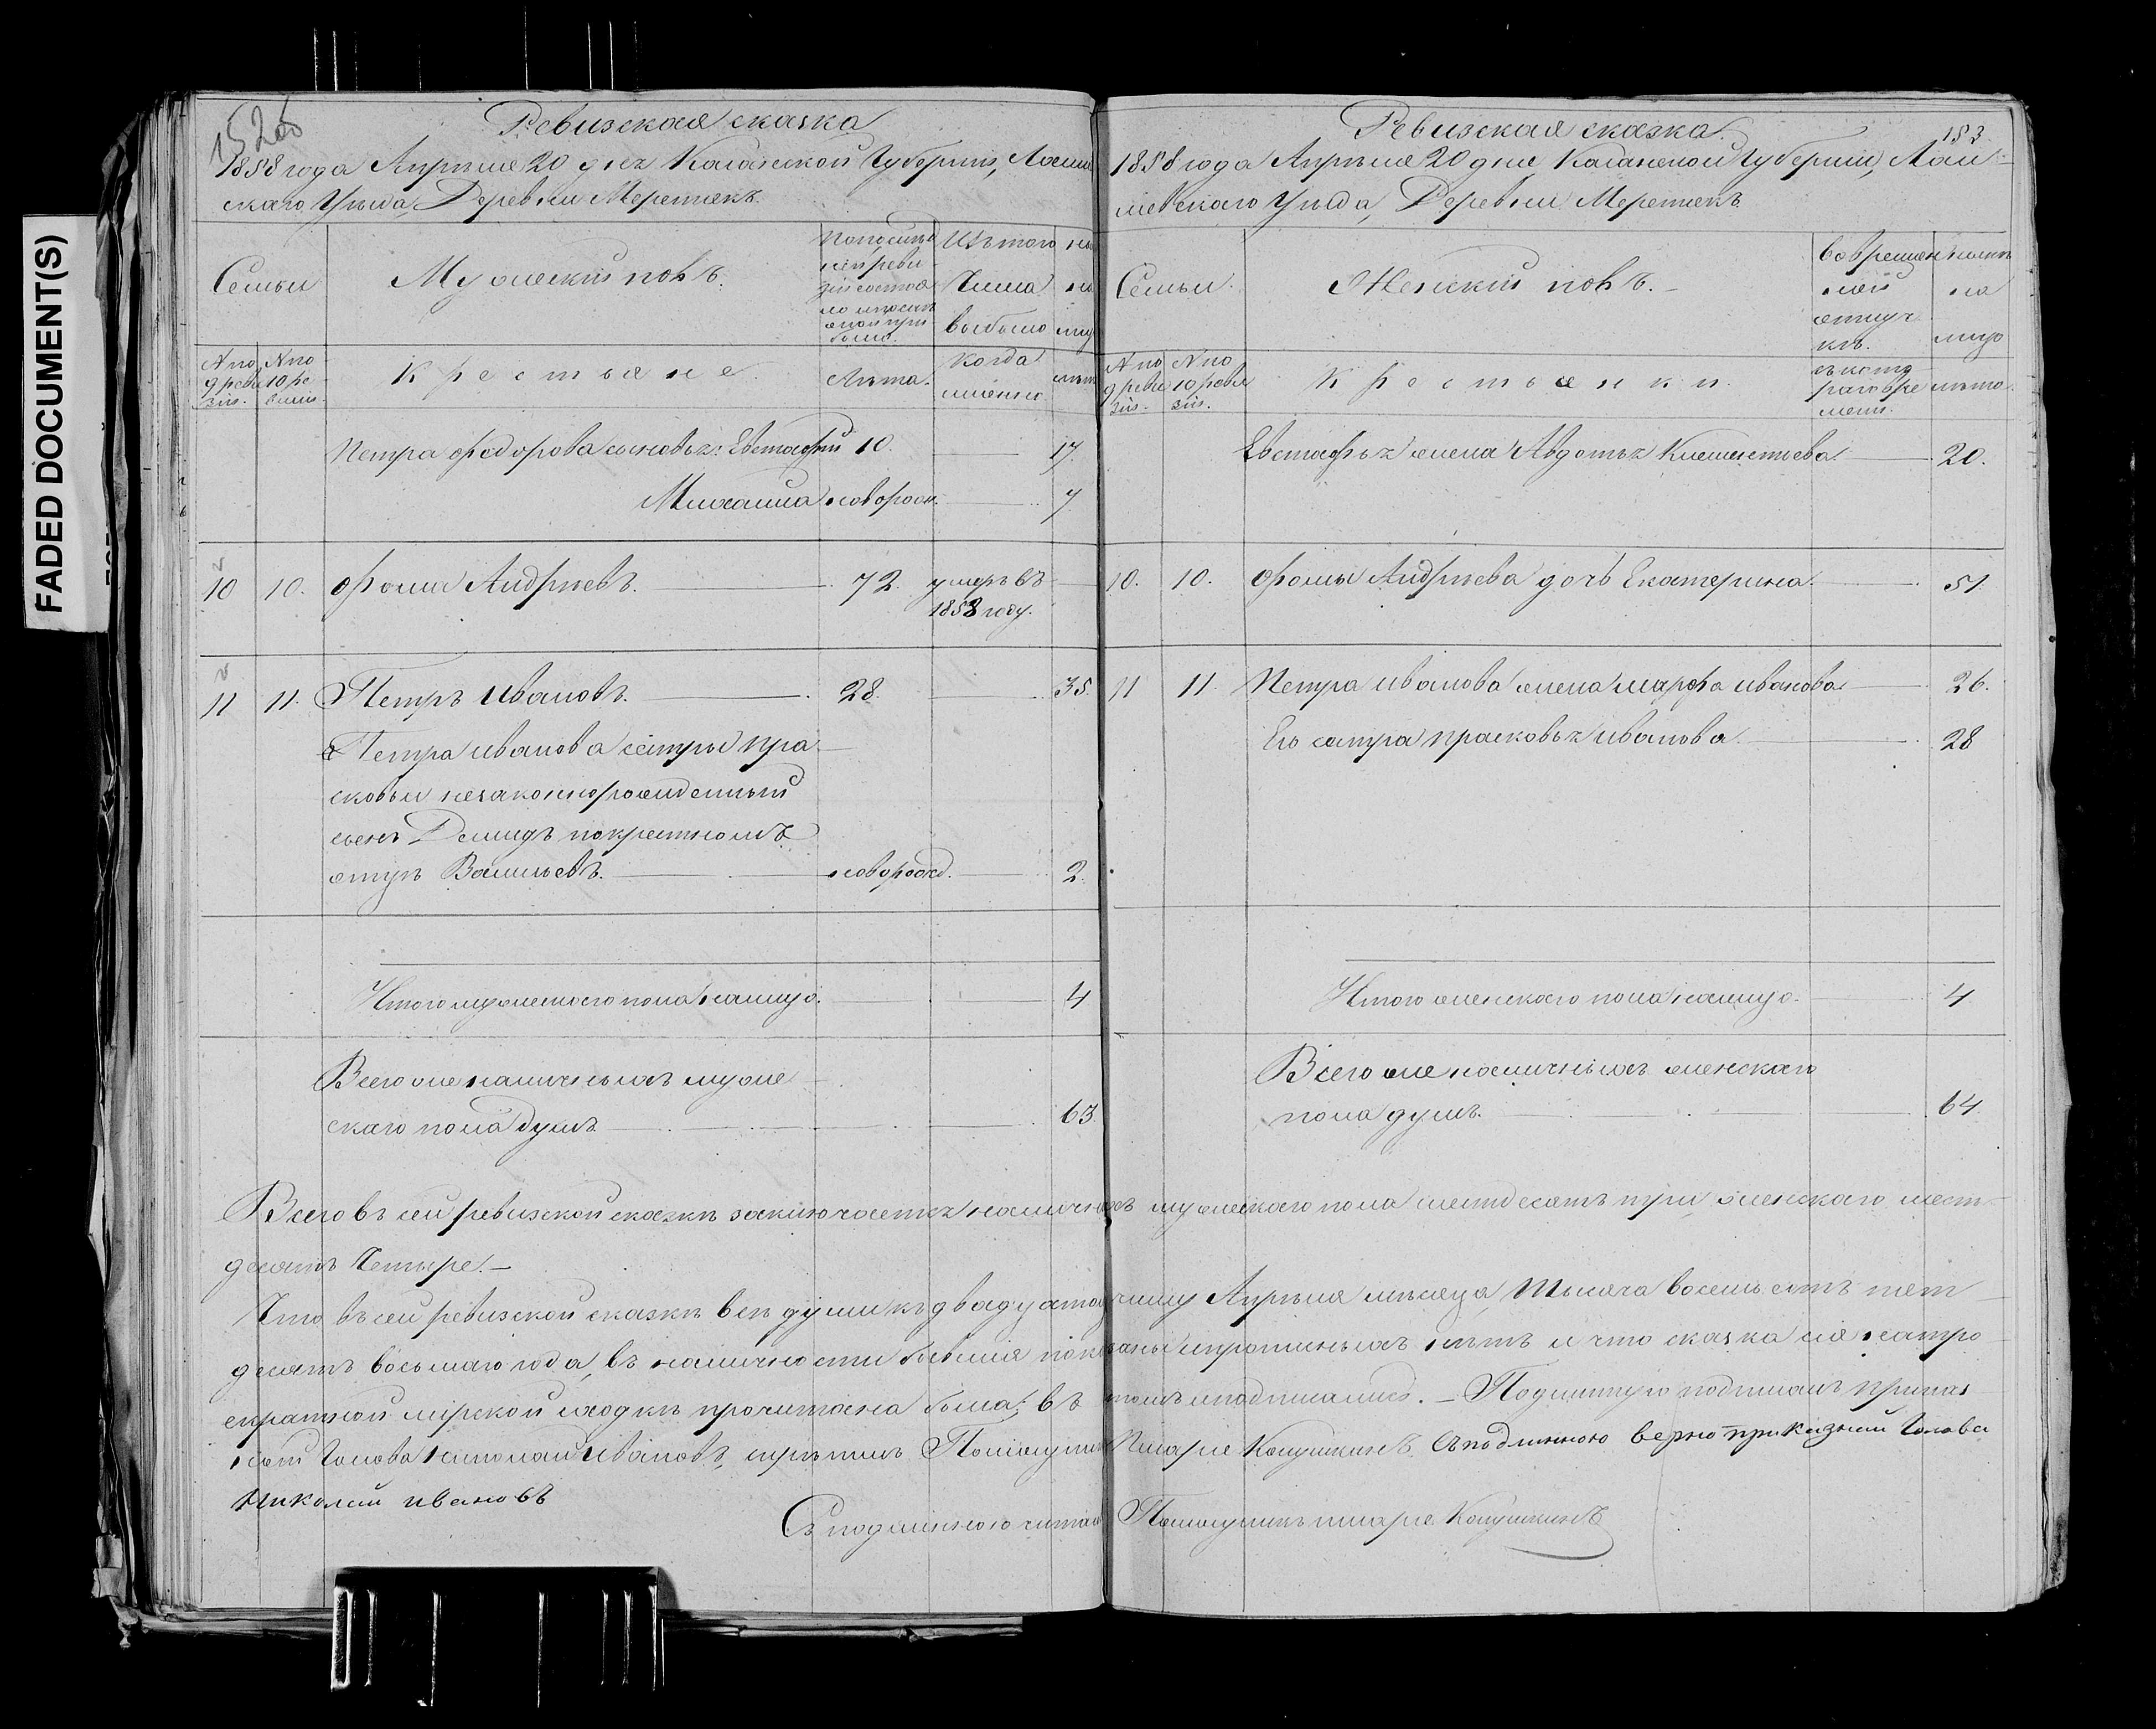 FADED DOCUMENT(S)
Ревизская сказка
1858 года Апрѣля 20 дня Казанской Губерніи, Лаише
скаго Уѣзда, Деревни Меретякъ.
Семьи
Мужескій полъ.
По послѣд
ней реви
зіи состоя
ло и послѣ
оной при
было.
Изъ того
Числа
выбыло
Ны
на
лиц
№ по
9 реви
зіи.
№ по
10 ре
визіи.
Крестьяне
Лѣта.
когда
именно
лѣт
Петра Федорова сыновья: Евстафій 10. 17.
Михаила новорожд. 7
10 10. Фома Андреевъ. 72. умеръ въ
1858 году.
11 11. Петръ Ивановъ. 28. 35.
Петра Иванова сестры Пра
сковьи незаконнорожденный
сынъ Демидъ по крестному
отцу Васильевъ. новорожд. 2.
Итого мужескаго пола на лицо. 4
Всего же наличныхъ муже
скаго пола душъ 63.
183
Ревизская сказка.
1858 года Апрѣля 20 дня Казанской Губерніи, Лаи
шевскаго Уѣзда, Деревни Меретякъ
Семьи.
Женскій полъ.
Во времен
ной
отлуч
кѣ.
нынѣ
на
лицо
№ по
9 реви
зіи.
№ по
10 реви
зіи.
Крестьянки.
съ кото
раго вре
мени.
лѣта.
Евстафья жена Авдотья Клементьева. 20.
10. 10. Фомы Андреева дочь Екатерина. 51.
11 11. Петра Иванова жена Марфа Иванова 26.
Его сестра Прасковья Иванова 28
Итого женскаго пола на лицо. 4
Всего же наличныхъ женскаго
пола душъ. 64.
Всего въ сей ревизской сказкѣ заключается наличныхъ мужескаго пола шестдесятъ три, женскаго шест
десятъ Четыре.
Что въ сей ревизской сказкѣ всѣ души къ двадцатому числу Апрѣля мѣсяца, Тысяча восемь сотъ пят
десятъ восьмаго года, въ наличности бывшія показаны и прописныхъ нѣтъ и что сказка сія на
спратной мірской сходкѣ прочитана была; въ томъ и подписался. Подлинную подписалъ Приказ
ный Голова Николай Ивановъ, скрѣпилъ Помощникъ Писаря Кокушкинъ. Съ подлинною верно приказный Голова
Николай Ивановъ
Съ подлинною читалъ Помощникъ писаря Кокушкинъ